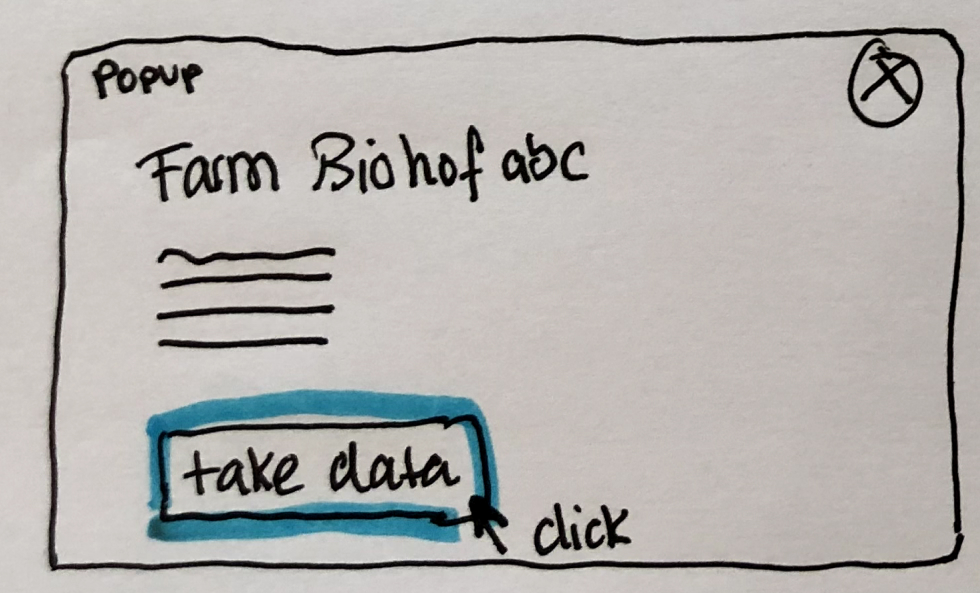 Popup
X
Farm Biohof abc
take data
click